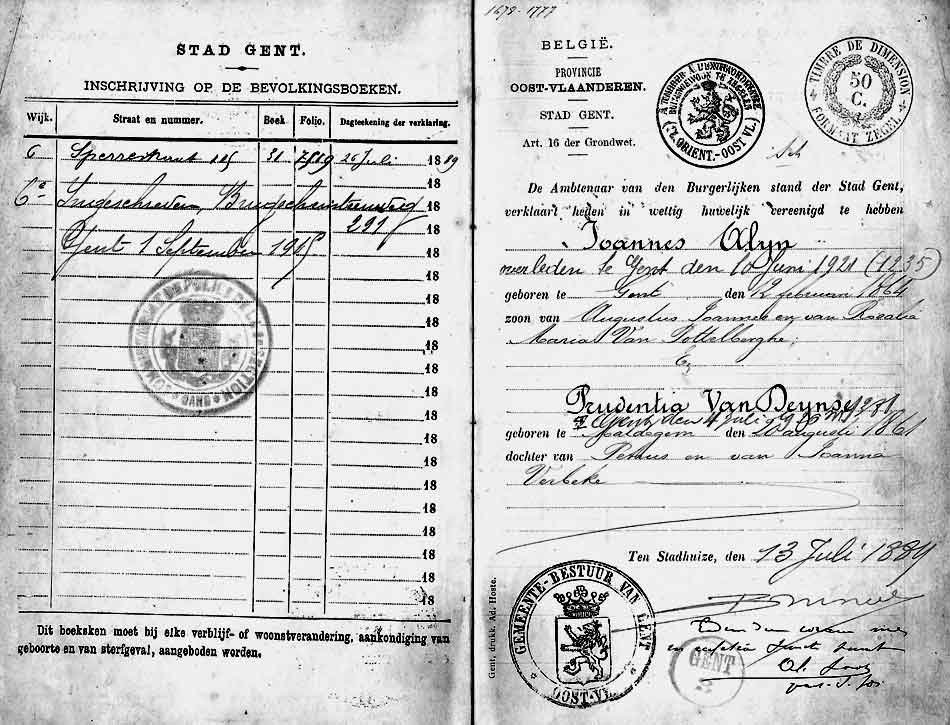 STAD GENT.
INSCHRIJVING OP DE BEVOLKINGSBOEKEN.
Wijk. Straat en nummer. Boek. Folio. Dagteekening der verklaring.
6 31 26 Juli 1889
18
Ingeschreven, 18
291 18
Gent 1 September 18
18
18
18
18
18
18
18
18
18
18
18
18
18
18
18
Dit boeksken moet bij elke verblijf- of woonstverandering, aankondiging van
geboorte en van sterfgeval, aangeboden worden.
1678-1777
BELGIË.
PROVINCIE
OOST-VLAANDEREN.
STAD GENT.
Art. 16 der Grondwet.
TIMBRE DE DIMENSION
50
C.
FORMAAT ZEGEL
FL. ORIENT.-OOST VL.
De Ambtenaar van den Burgerlijken stand der Stad Gent,
verklaart heden in wettig huwelijk vereenigd te hebben
Joannes Alyn
overleden te Gent den 10 Juni 1921 (1235)
geboren te Gent den 12 februari 1864
zoon van Augustus Joannes en van Rosalia
Maria Van Pottelberghe;
En
Prudentia Van Deynse
Gent, den 4 juli
geboren te Maldegem den 20 augusti 1861
dochter van Petrus en van Joanna
Verbeke
Ten Stadhuize, den 13 Juli 1889
GEMEENTE-BESTUUR VAN GENT
OOST-VL.
GENT
Gent, drukk. Ad. Hoste.